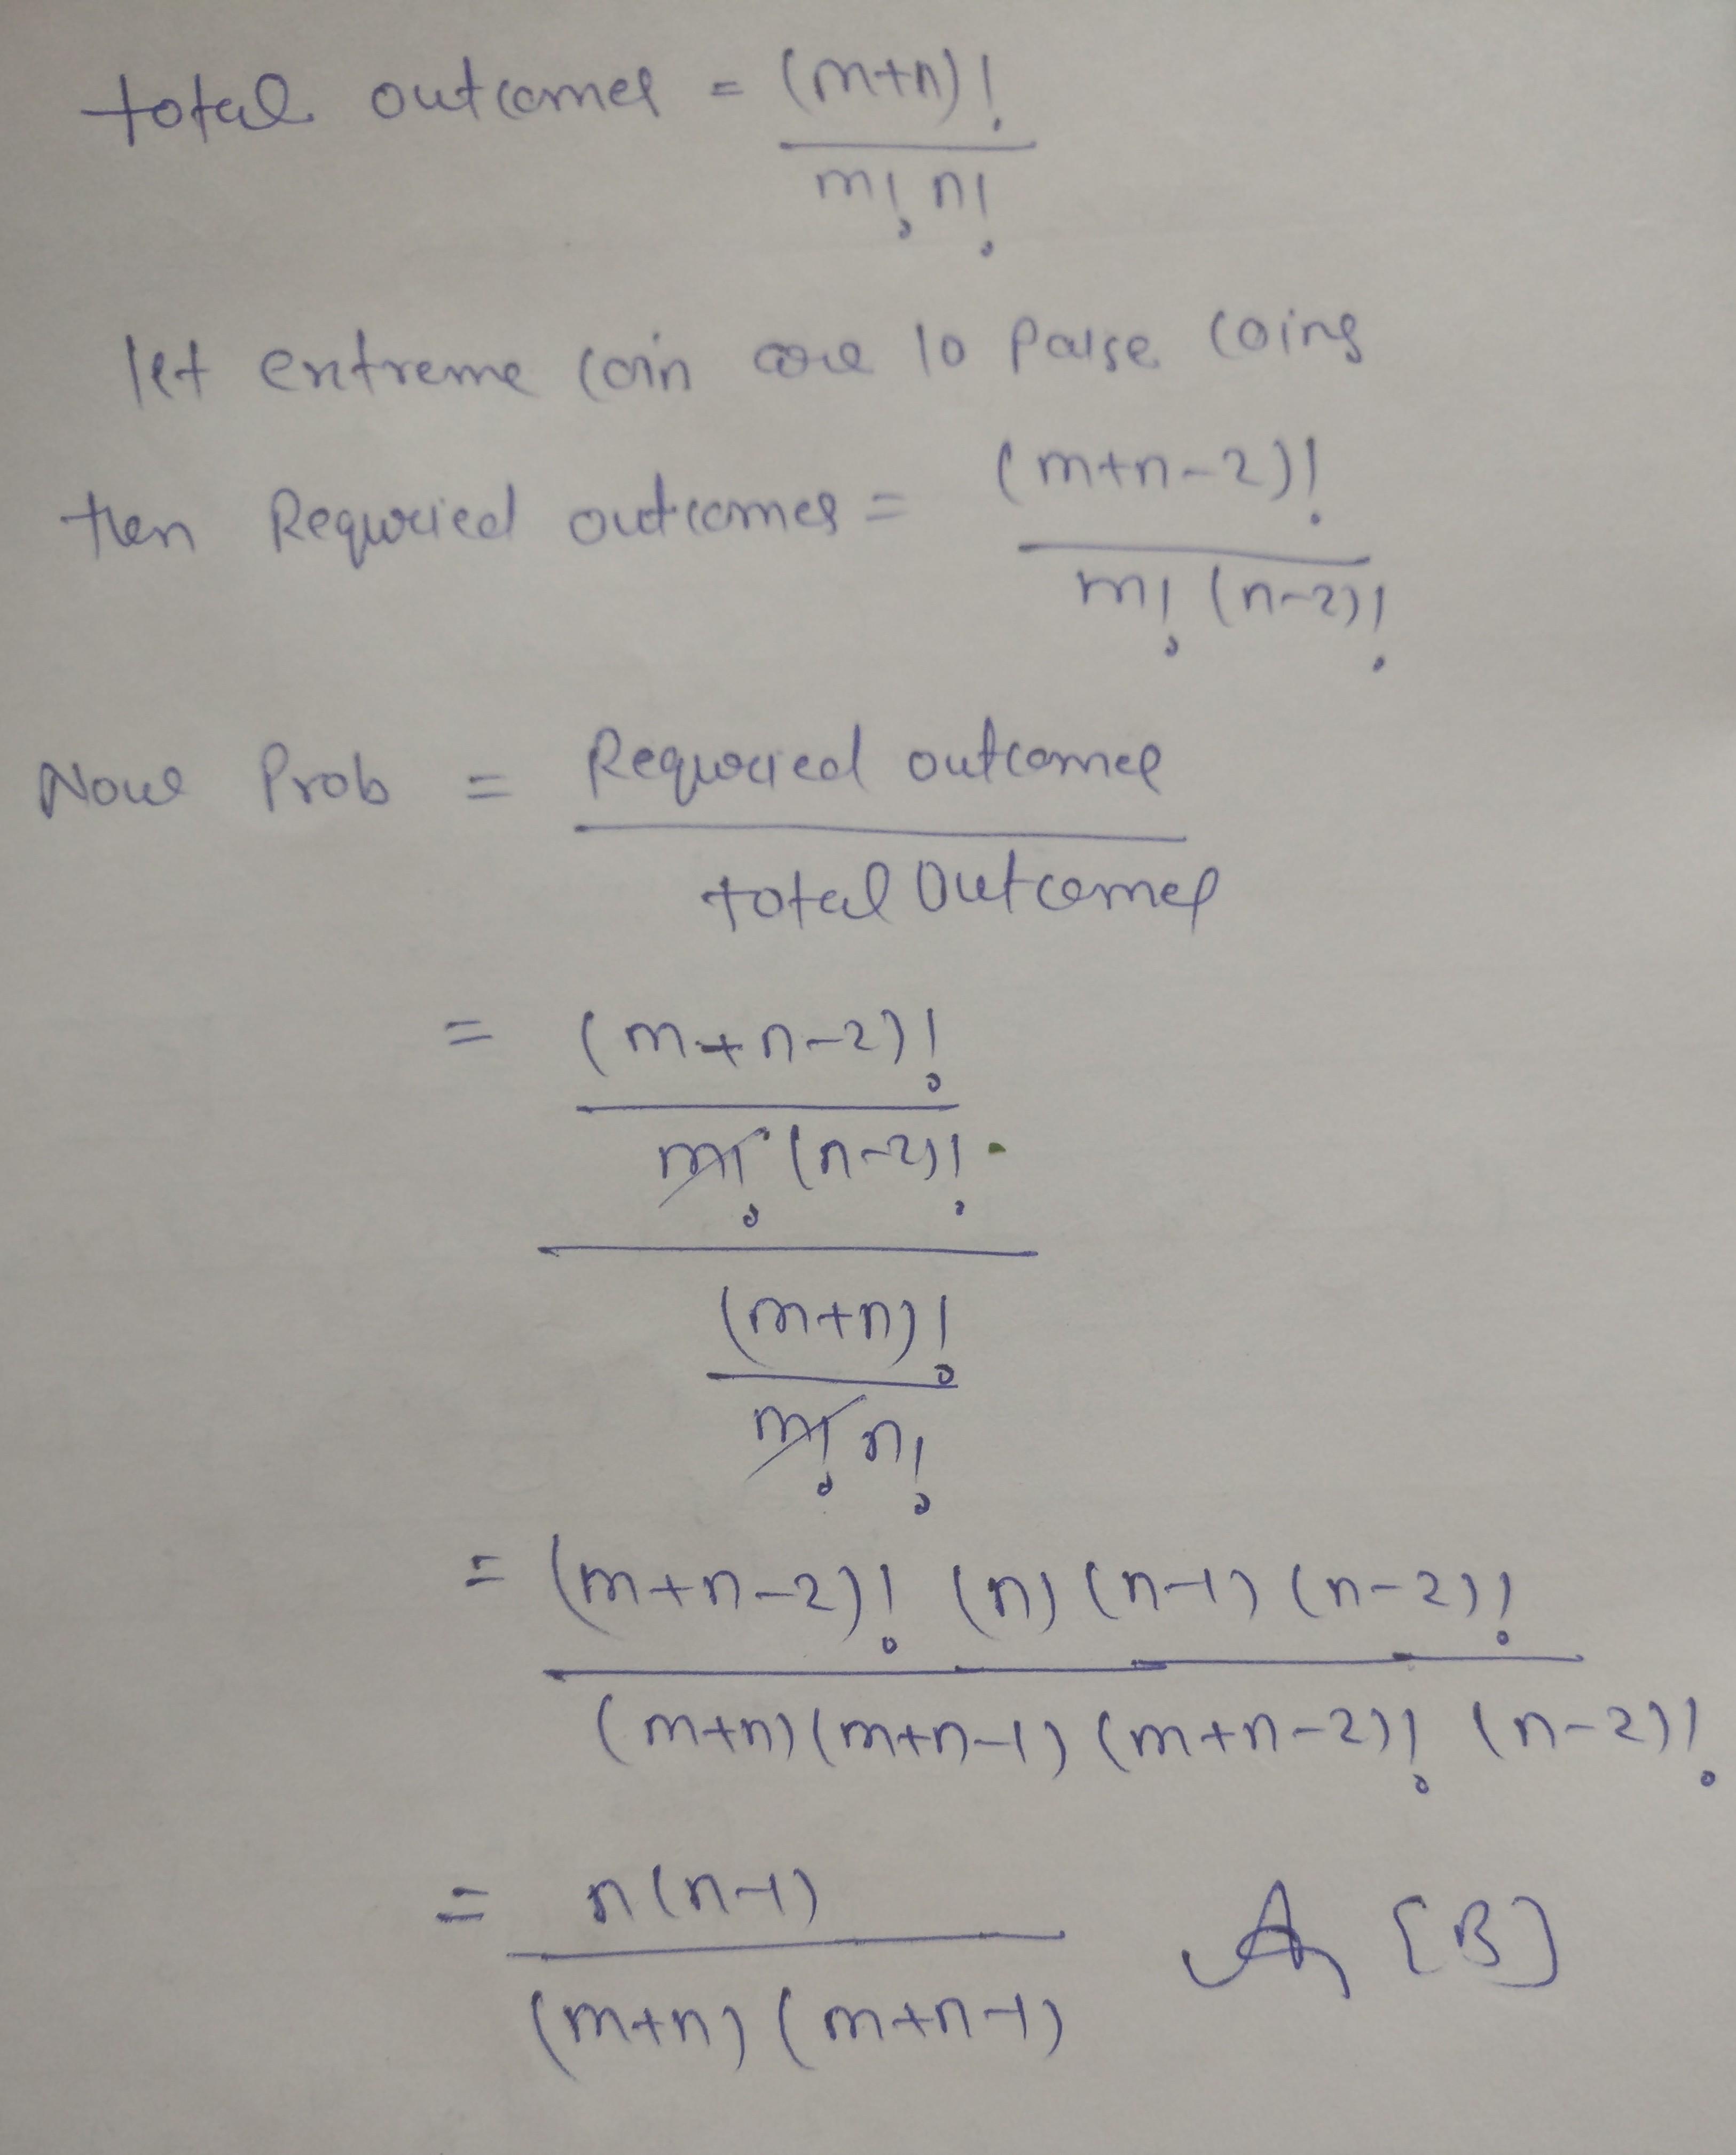 total outcomes = (m+n)!
m! n!
let extreme coin are 10 Paise coins
then Requried outcomes = (m+n-2)!
m! (n-2)!
Now Prob = Requried outcomes
total Outcomes
= (m+n-2)!
m! (n-2)!
(m+n)!
m! n!
= (m+n-2)! (n) (n-1) (n-2)!
(m+n) (m+n-1) (m+n-2)! (n-2)!
= n(n-1)
(m+n) (m+n-1)
A [B]